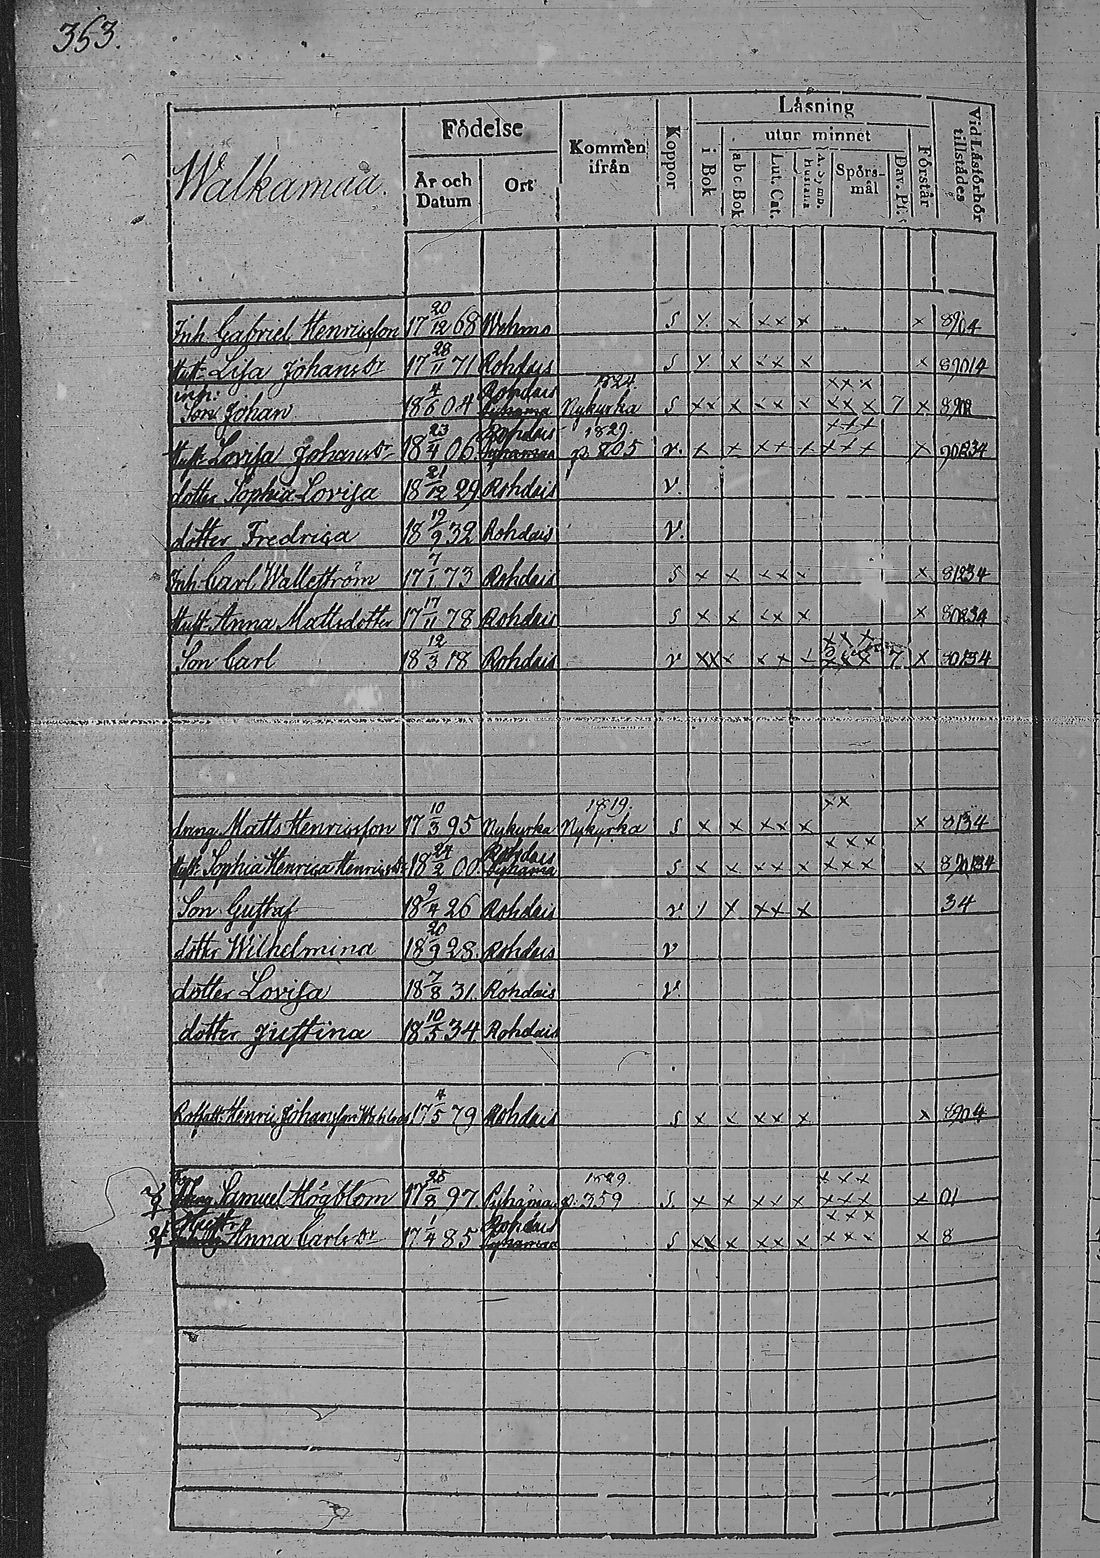 353.
Walkamaa.
Födelse
År och Datum
Ort
Kommen ifrån
Koppor
Läsning
utur minnet
i Bok
abc-Bok
Lut. Cat.
Spörsmål
Dav. Ps.
Förstår
Vid Läsförhör tillstädes
Inh. Gabriel Henricsson 17 20/12 68 Wehmo S x x x x x x
Hust. Lisa Johansdr 17 28/11 71 Rohdais S x x x x x x 89014
inh: 1824.
Son Johan 18 4/6 04 Rohdais Nykyrka S x x x x x x x x x x 7 x
Hust. Lovisa Johansdr 18 23/4 06 Rohdais 1829. p. 805 v. x x x x x x x x x 901234
dotter Sophia Lovisa 18 21/12 29 Rohdais v.
dotter Fredrica 18 19/9 32 Rohdais v.
Inh. Carl Wallström 17 7/1 73 Rohdais S x x x x x x 81234
Hust. Anna Mattsdotter 17 17/11 78 Rohdais S x x x x x x
Son Carl 18 12/3 18 Rohdais v x x x x x x x x 7 x 80134
dräng Matts Henricsson 17 10/3 95 Nykyrka 1819. Nykyrka S x x x x x x x x 8134
Hust. Sophia Henrica Henricsdr 18 24/2 00 Rohdais S x x x x x x x x x
Son Gustaf 18 9/4 26 Rohdais v x x x x x 34
dotter Wilhelmina 18 20/9 28 Rohdais v
dotter Lovisa 18 7/8 31 Rohdais v.
dotter Justina 18 10/5 34 Rohdais
Henric Johansson 17 4/5 79 Rohdais S x x x x x x 8904
Samuel Högblom 17 25/8 97 Pyhämaa 1829. p. 359 S. x x x x x x x x x 01
Hust. Anna Carlsdr 17 1/4 85 Rohdais S x x x x x x x x x x 8